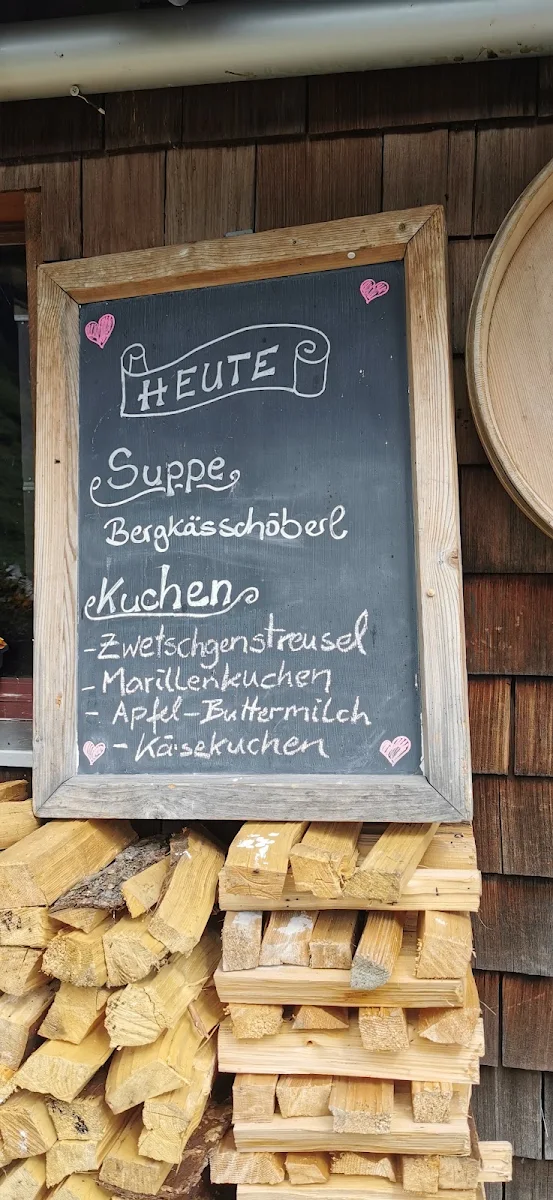 HEUTE
Suppe
Bergkässchöberl
Kuchen
-Zwetschgenstreusel
- Marillenkuchen
- Apfel-Buttermilch
- Käsekuchen